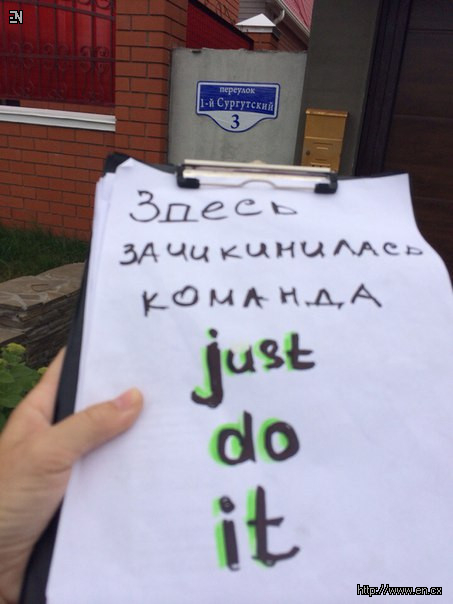 EN
переулок
1-й Сургутский
3
Здесь
зачикинилась
команда
just
do
it
http://www.en.cx